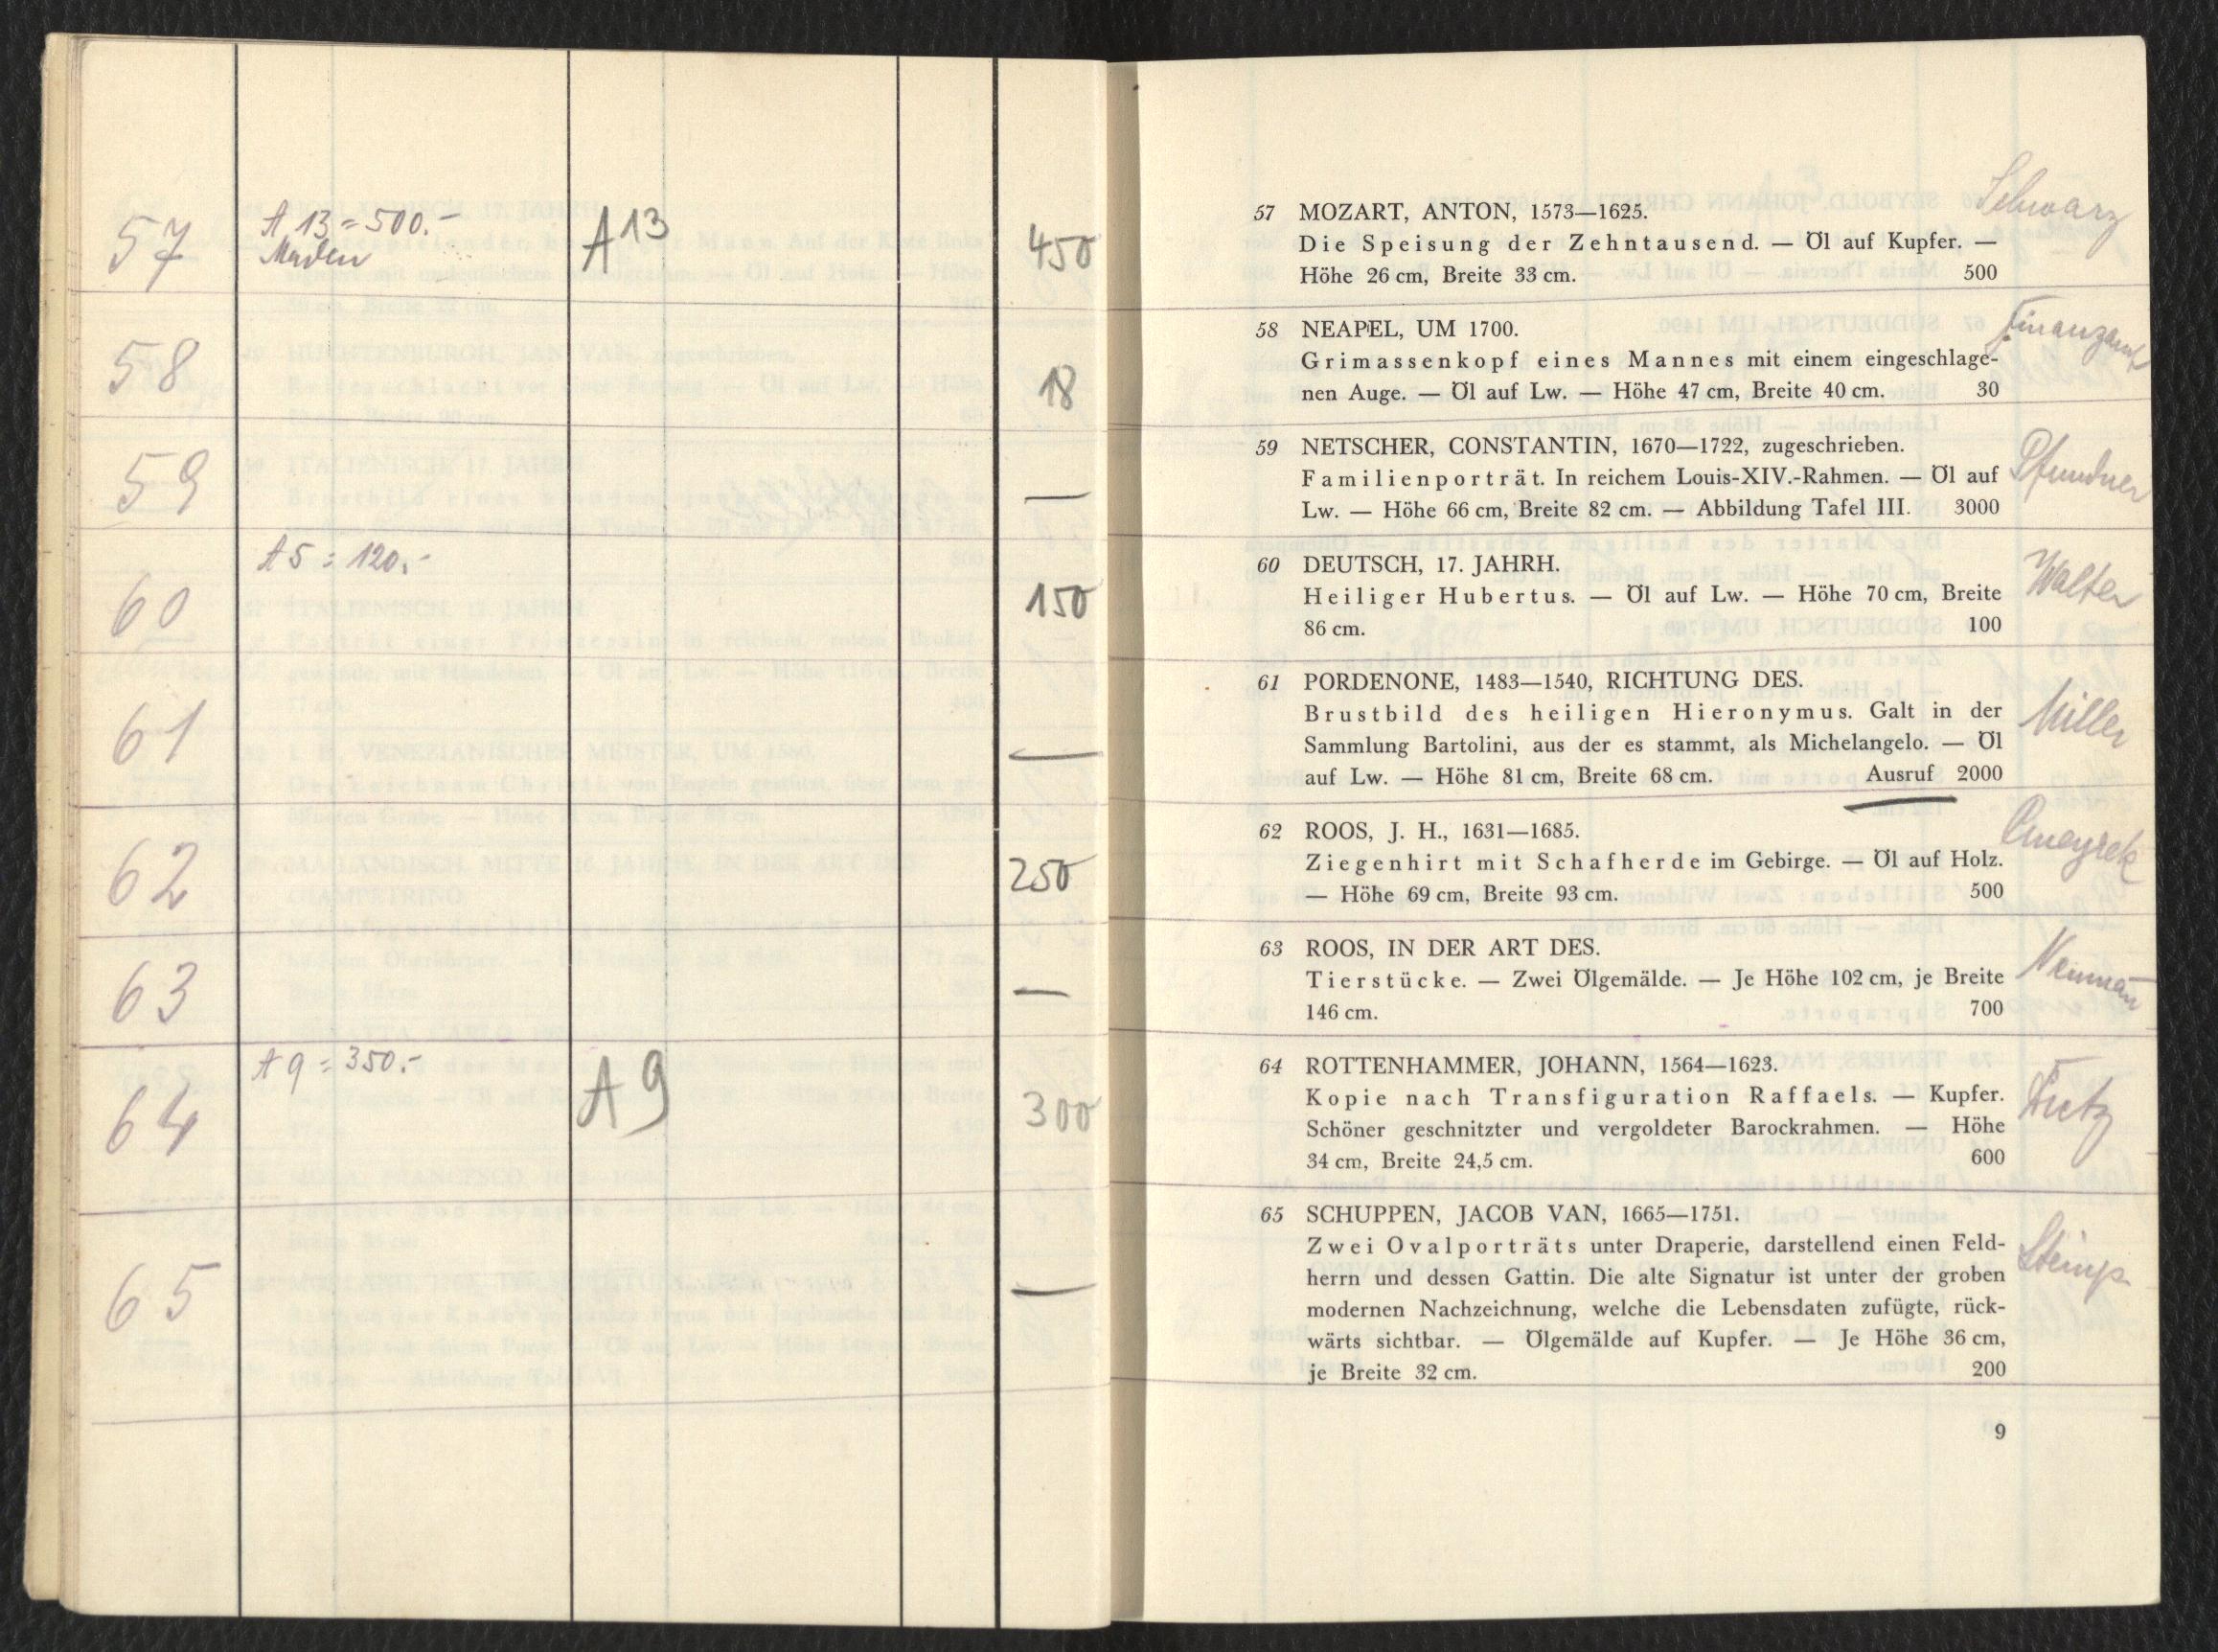 57
A 13 = 500.-
A 13
450
58
18
59
—
A 5 = 120.-
60
150
61
—
62
250
63
—
A 9 = 350.-
64
A 9
300
65
—
Schwarz
57 MOZART, ANTON, 1573—1625.
Die Speisung der Zehntausend. — Öl auf Kupfer. —
Höhe 26 cm, Breite 33 cm. 500
Finanzamt
58 NEAPEL, UM 1700.
Grimassenkopf eines Mannes mit einem eingeschlage-
nen Auge. — Öl auf Lw. — Höhe 47 cm, Breite 40 cm. 30
Pfundner
59 NETSCHER, CONSTANTIN, 1670—1722, zugeschrieben.
Familienporträt. In reichem Louis-XIV.-Rahmen. — Öl auf
Lw. — Höhe 66 cm, Breite 82 cm. — Abbildung Tafel III. 3000
Walter
60 DEUTSCH, 17. JAHRH.
Heiliger Hubertus. — Öl auf Lw. — Höhe 70 cm, Breite
86 cm. 100
61 PORDENONE, 1483—1540, RICHTUNG DES.
Miller
Brustbild des heiligen Hieronymus. Galt in der
Sammlung Bartolini, aus der es stammt, als Michelangelo. — Öl
auf Lw. — Höhe 81 cm, Breite 68 cm. Ausruf 2000
62 ROOS, J. H., 1631—1685.
Ziegenhirt mit Schafherde im Gebirge. — Öl auf Holz.
— Höhe 69 cm, Breite 93 cm. 500
63 ROOS, IN DER ART DES.
Neumān
Tierstücke. — Zwei Ölgemälde. — Je Höhe 102 cm, je Breite
146 cm. 700
64 ROTTENHAMMER, JOHANN, 1564—1623.
Kopie nach Transfiguration Raffaels. — Kupfer.
Schöner geschnitzter und vergoldeter Barockrahmen. — Höhe
34 cm, Breite 24,5 cm. 600
65 SCHUPPEN, JACOB VAN, 1665—1751.
Zwei Ovalporträts unter Draperie, darstellend einen Feld-
herrn und dessen Gattin. Die alte Signatur ist unter der groben
modernen Nachzeichnung, welche die Lebensdaten zufügte, rück-
wärts sichtbar. — Ölgemälde auf Kupfer. — Je Höhe 36 cm,
je Breite 32 cm. 200
9